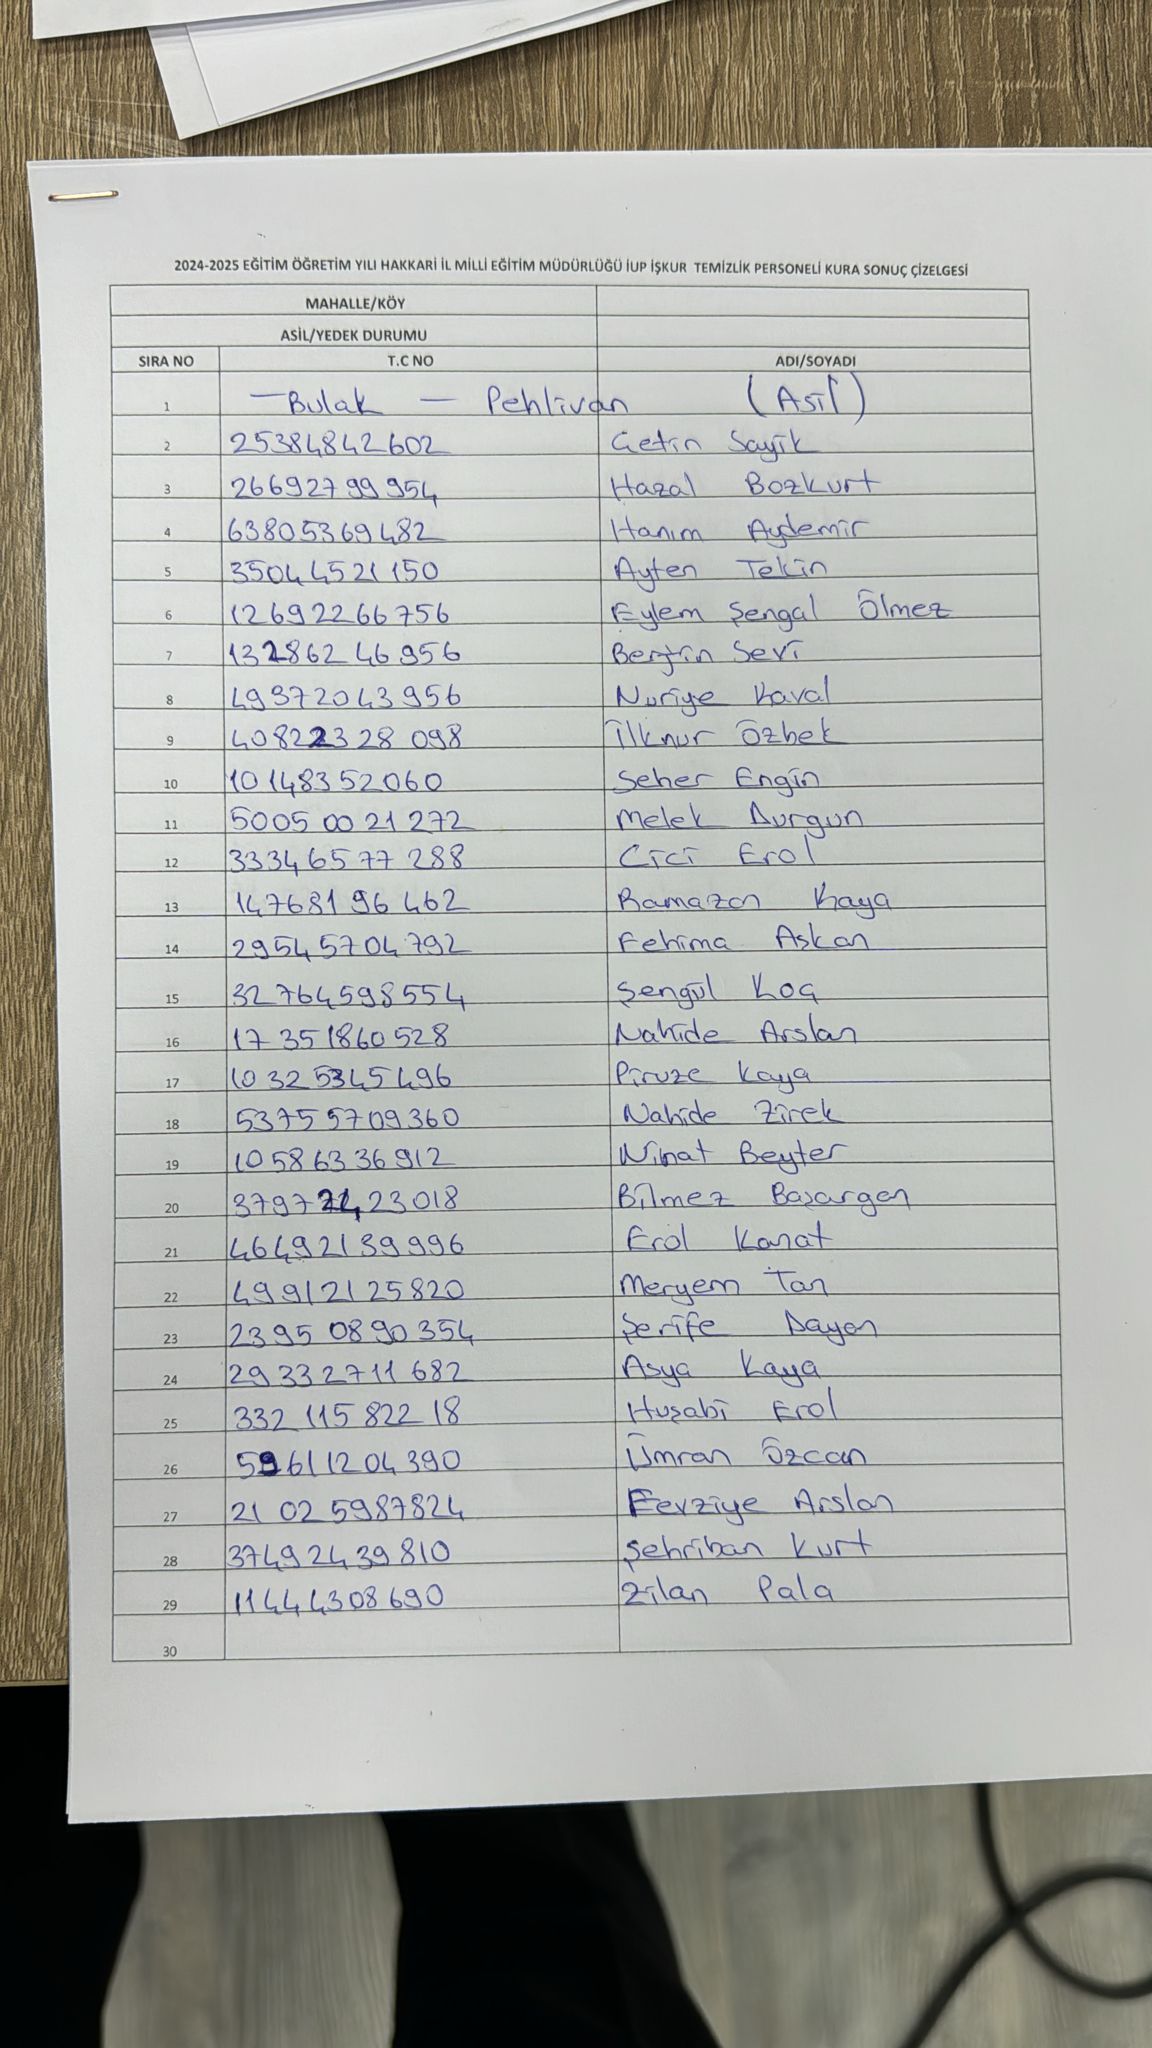 2024-2025 EĞİTİM ÖĞRETİM YILI HAKKARİ İL MİLLİ EĞİTİM MÜDÜRLÜĞÜ İUP İŞKUR TEMİZLİK PERSONELİ KURA SONUÇ ÇİZELGESİ
MAHALLE/KÖY
ASİL/YEDEK DURUMU
SIRA NO T.C NO ADI/SOYADI
1 —Bulak — Pehlivan (Asil)
2 25384842602 Çetin Sayik
3 26692799954 Hazal Bozkurt
4 63805369482 Hanım Aydemir
5 35044521150 Ayten Tekin
6 12692266756 Eylem Şengal Ölmez
7 132862 46 956 Berfin Sevi
8 49372043956 Nuriye Kaval
9 40822328 098 İlknur Özbek
10 10148352060 Seher Engin
11 5005 00 21 272 Melek Durgun
12 3334 6577 288 Cici Erol
13 147681 96 462 Ramazan Kaya
14 29545704792 Fehima Askan
15 32764598554 Şengül Koç
16 17 351860528 Nahide Arslan
17 10 325345496 Piruze Kaya
18 53755709360 Nahide Zirek
19 10586336912 Nihat Beyter
20 37977423018 Bilmez Başargan
21 46492139996 Erol Kanat
22 49912125820 Meryem Tan
23 2395 0890354 Şerife Dayan
24 29332711682 Asya Kaya
25 332 115 822 18 Huşabi Erol
26 59611204390 Ümran Özcan
27 21 02 5987824 Fevziye Arslan
28 37492439810 Şehriban Kurt
29 11444308690 Zilan Pala
30